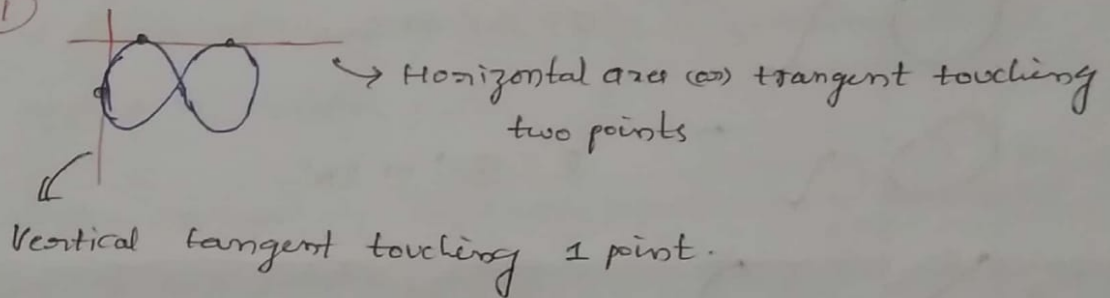 1)
→ Horizontal axes (or) trangent touching
two points
Vertical tangent touching 1 point.